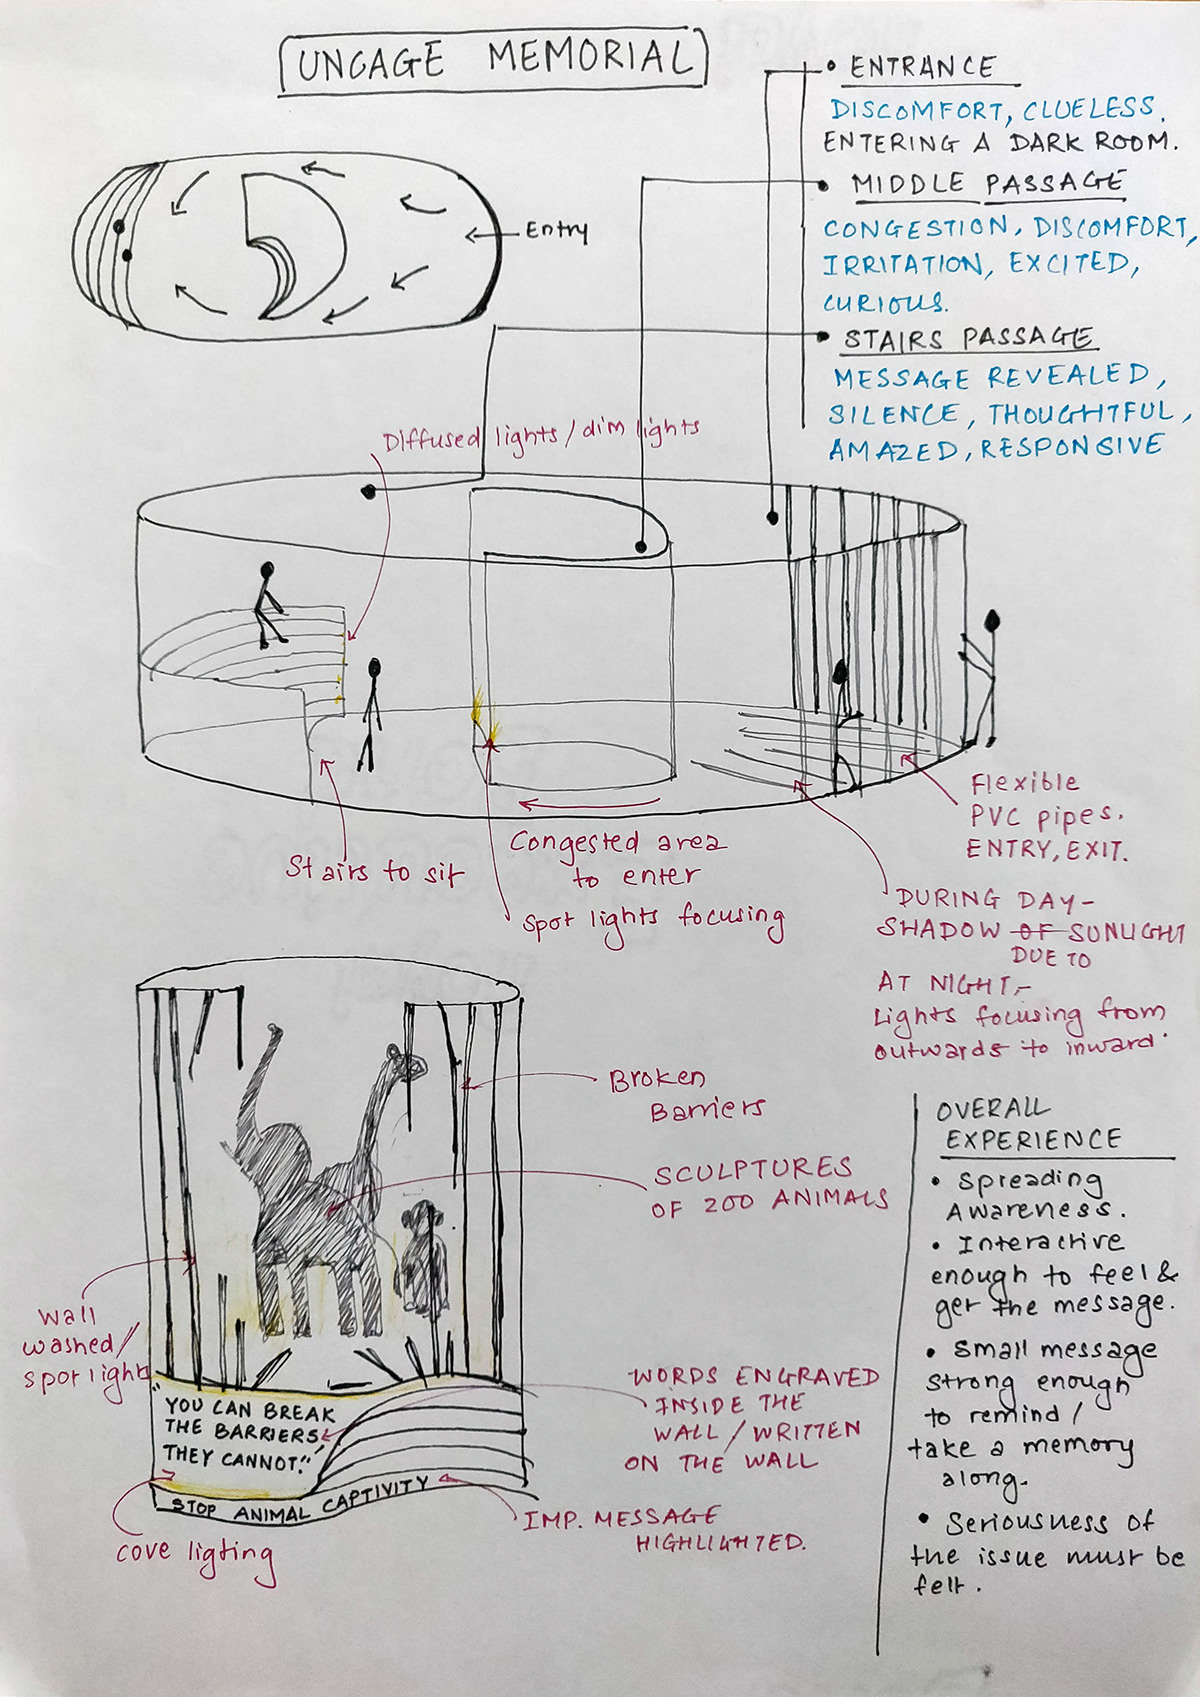 UNCAGE MEMORIAL
• ENTRANCE
DISCOMFORT, CLUELESS.
ENTERING A DARK ROOM.
• MIDDLE PASSAGE
CONGESTION, DISCOMFORT,
IRRITATION, EXCITED,
CURIOUS.
• STAIRS PASSAGE
MESSAGE REVEALED,
SILENCE, THOUGHTFUL,
AMAZED, RESPONSIVE
Entry
Diffused lights/dim lights
Flexible
PVC pipes.
ENTRY, EXIT.
Stairs to sit
Congested area
to enter
spot lights focusing
DURING DAY-
SHADOW OF SUNLIGHT
DUE TO
AT NIGHT,-
Lights focusing from
outwards to inward.
Broken
Barriers
SCULPTURES
OF ZOO ANIMALS
Wall
washed/
spot lights
WORDS ENGRAVED
INSIDE THE
WALL / WRITTEN
ON THE WALL
"YOU CAN BREAK
THE BARRIERS
THEY CANNOT."
STOP ANIMAL CAPTIVITY
IMP. MESSAGE
HIGHLIGHTED.
cove ligting
OVERALL
EXPERIENCE
• Spreading
Awareness.
• Interactive
enough to feel &
get the message.
• Small message
strong enough
to remind /
take a memory
along.
• Seriousness of
the issue must be
felt.